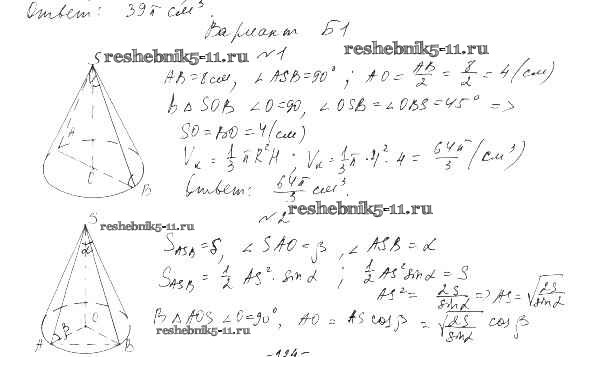 Ответ: 39π см³.
Вариант Б1
reshebnik5-11.ru
reshebnik5-11.ru
№1
S
A
O
B
AB = 8 см, ∠ASB = 90°; AO = AB/2 = 8/2 = 4 (см)
В △ SOB ∠O = 90, ∠OSB = ∠OBS = 45° =>
SO = BO = 4 (см)
Vк = 1/3 πR²H; Vк = 1/3 π · 4² · 4 = 64π/3 (см³)
Ответ: 64π/3 см³.
№2
reshebnik5-11.ru
S
reshebnik5-11.ru
α
O
β
A
B
S_ASB = S, ∠SAO = β, ∠ASB = α
S_ASB = 1/2 AS² · sin α; 1/2 AS² sin α = S
AS² = 2S/sin α => AS = √(2S/sin α)
В △ AOS ∠O = 90°, AO = AS cos β = √(2S/sin α) cos β
reshebnik5-11.ru
-194-